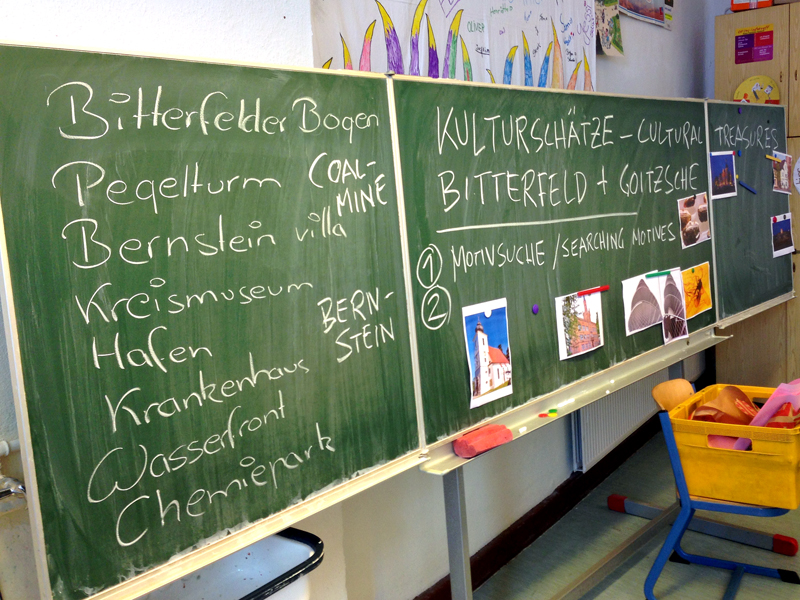 Bitterfelder Bogen
Pegelturm
COAL-
MINE
Bernstein villa
Kreismuseum
BERN-
STEIN
Hafen
Krankenhaus
Wasserfront
Chemiepark
KULTURSCHÄTZE – CULTURAL TREASURES
BITTERFELD + GOITZSCHE
① MOTIVSUCHE / SEARCHING MOTIVES
②